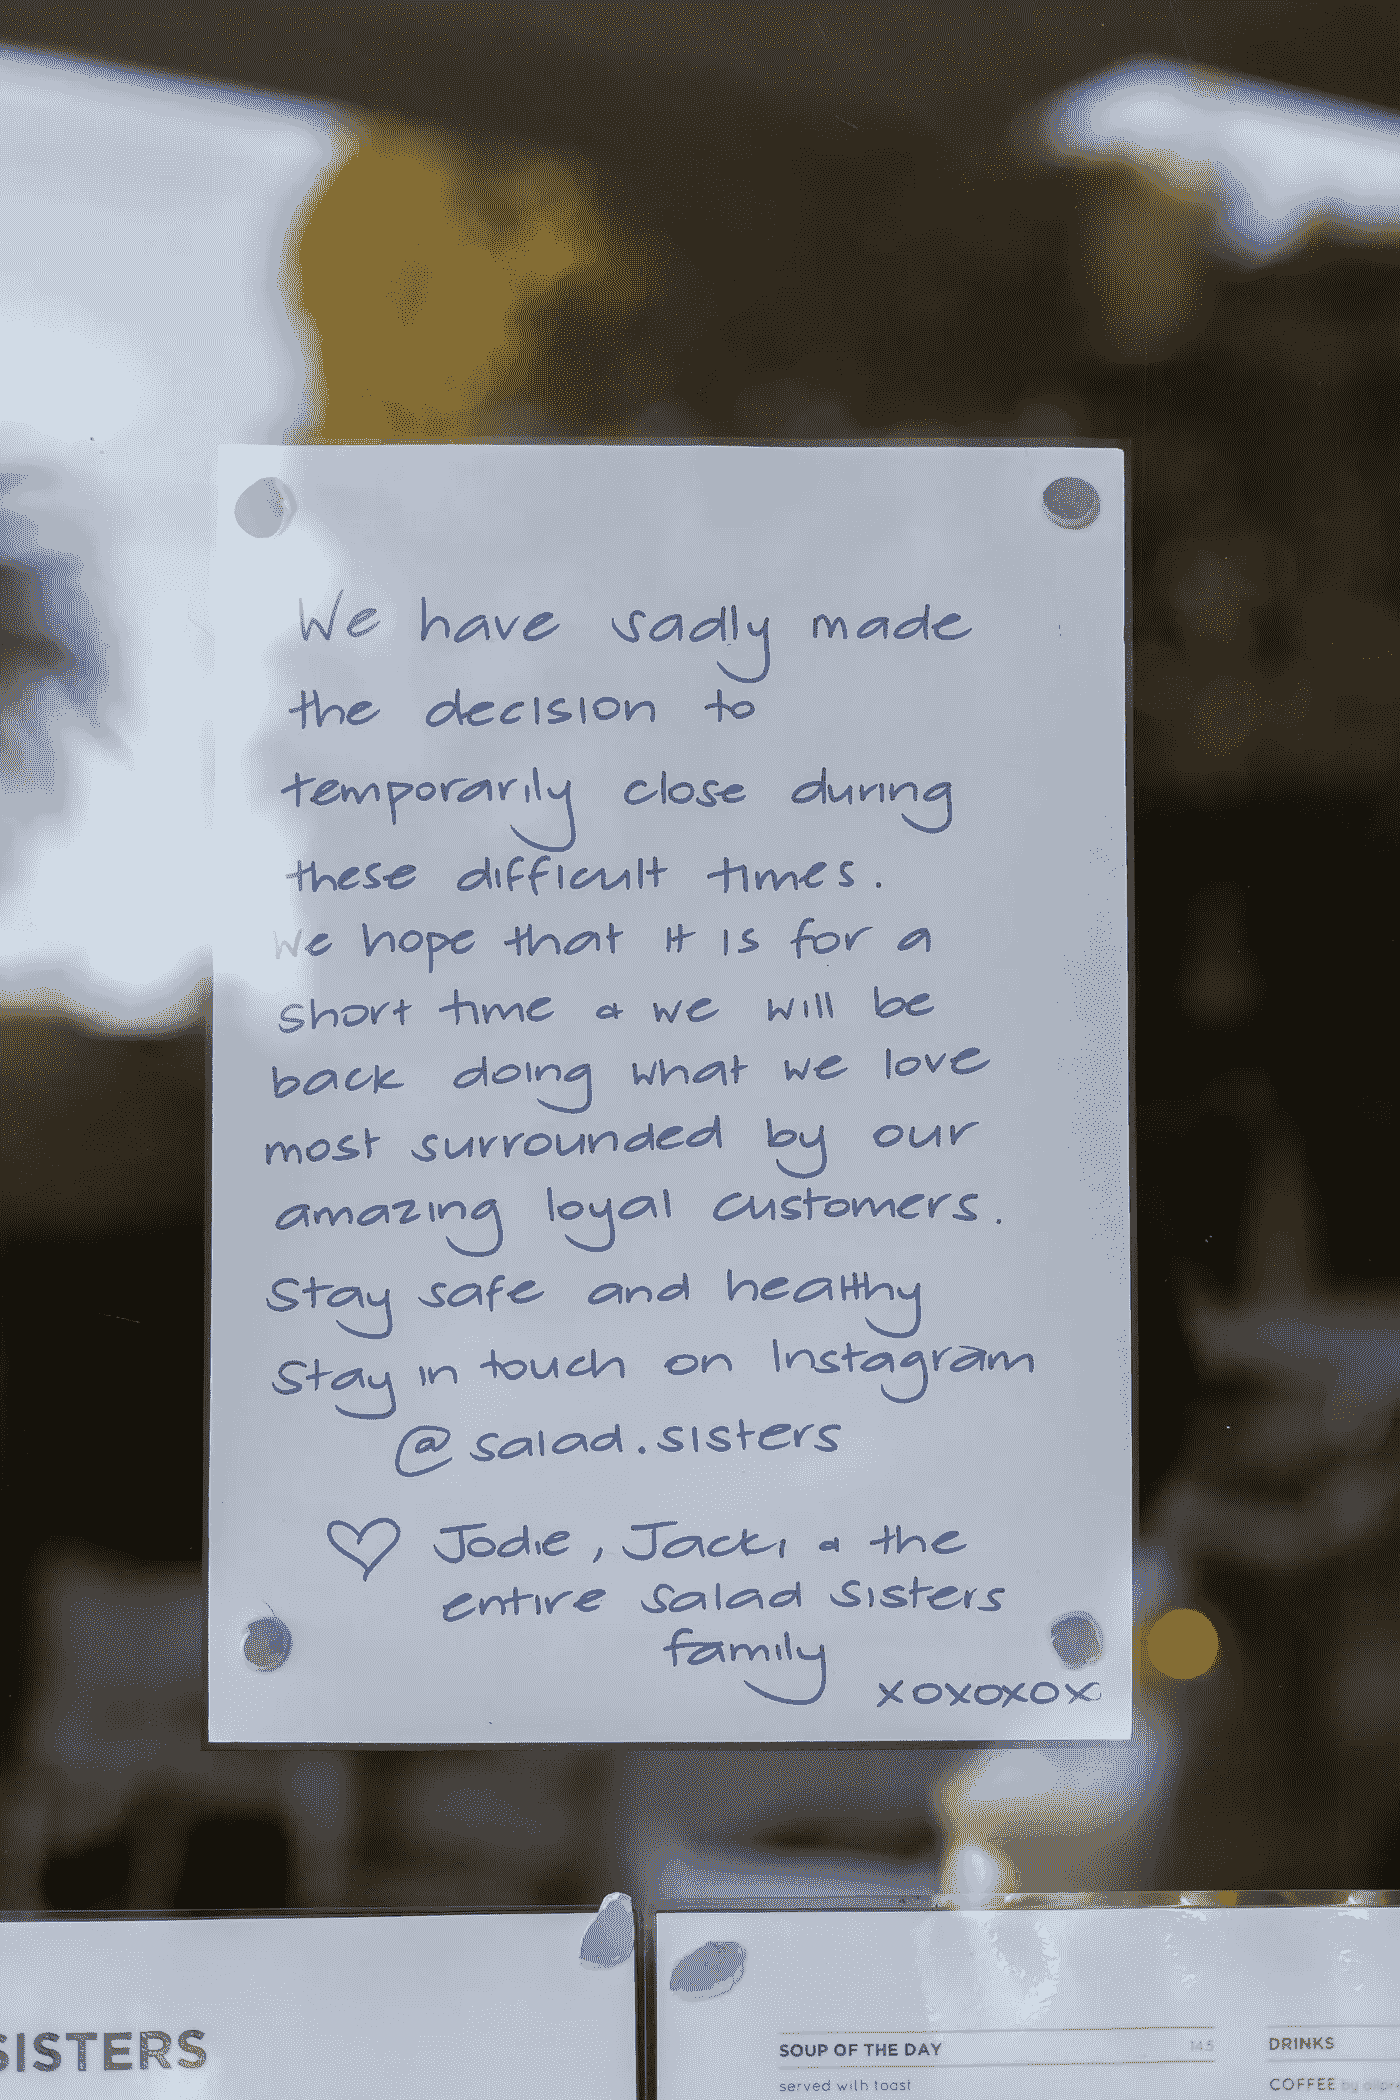 We have sadly made
the decision to
temporarily close during
these difficult times.
We hope that it is for a
short time & we will be
back doing what we love
most surrounded by our
amazing loyal customers.
Stay safe and healthy
Stay in touch on Instagram
@salad.sisters
♡ Jodie, Jacki & the
entire Salad Sisters
family
xoxoxox
SISTERS
SOUP OF THE DAY 14.5
served with toast
DRINKS
COFFEE by